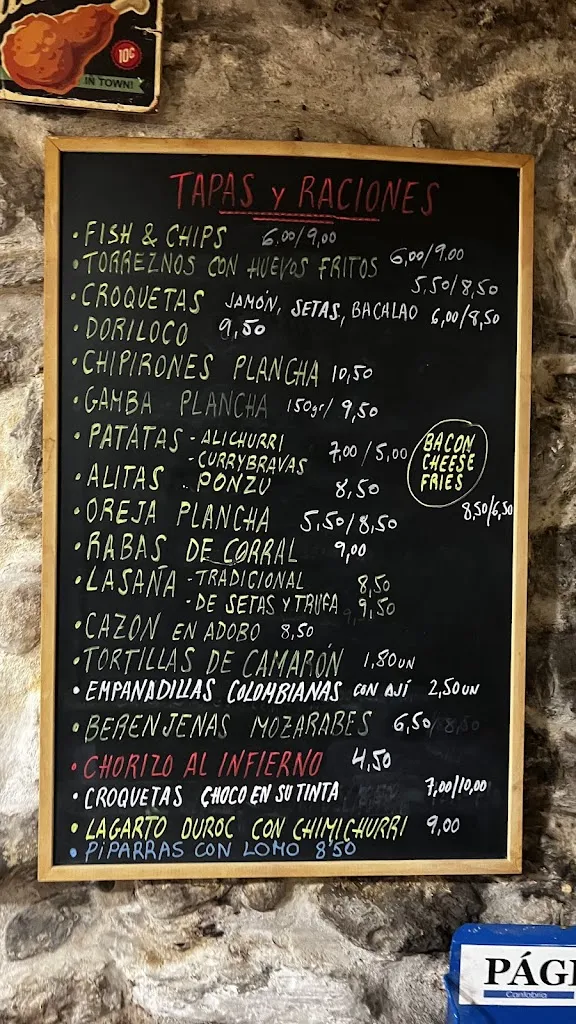 10¢
IN TOWN!
TAPAS Y RACIONES
• FISH & CHIPS 6,00/9,00
• TORREZNOS CON HUEVOS FRITOS 6,00/9,00
5,50/8,50
• CROQUETAS JAMÓN, SETAS, BACALAO 6,00/8,50
• DORILOCO 9,50
• CHIPIRONES PLANCHA 10,50
• GAMBA PLANCHA 150gr/ 9,50
• PATATAS - ALICHURRI 7,00/5,00
- CURRYBRAVAS
BACON
CHEESE
FRIES
8,50/6,50
• ALITAS - PONZU 8,50
• OREJA PLANCHA 5,50/8,50
• RABAS DE CORRAL 9,00
• LASAÑA - TRADICIONAL 8,50
- DE SETAS Y TRUFA 9,50
• CAZON EN ADOBO 8,50
• TORTILLAS DE CAMARÓN 1,80UN
• EMPANADILLAS COLOMBIANAS CON AJÍ 2,50UN
• BERENJENAS MOZARABES 6,50/8,50
• CHORIZO AL INFIERNO 4,50
• CROQUETAS CHOCO EN SU TINTA 7,00/10,00
• LAGARTO DUROC CON CHIMICHURRI 9,00
• PIPARRAS CON LOMO 8'50
PÁGI
Cantabria